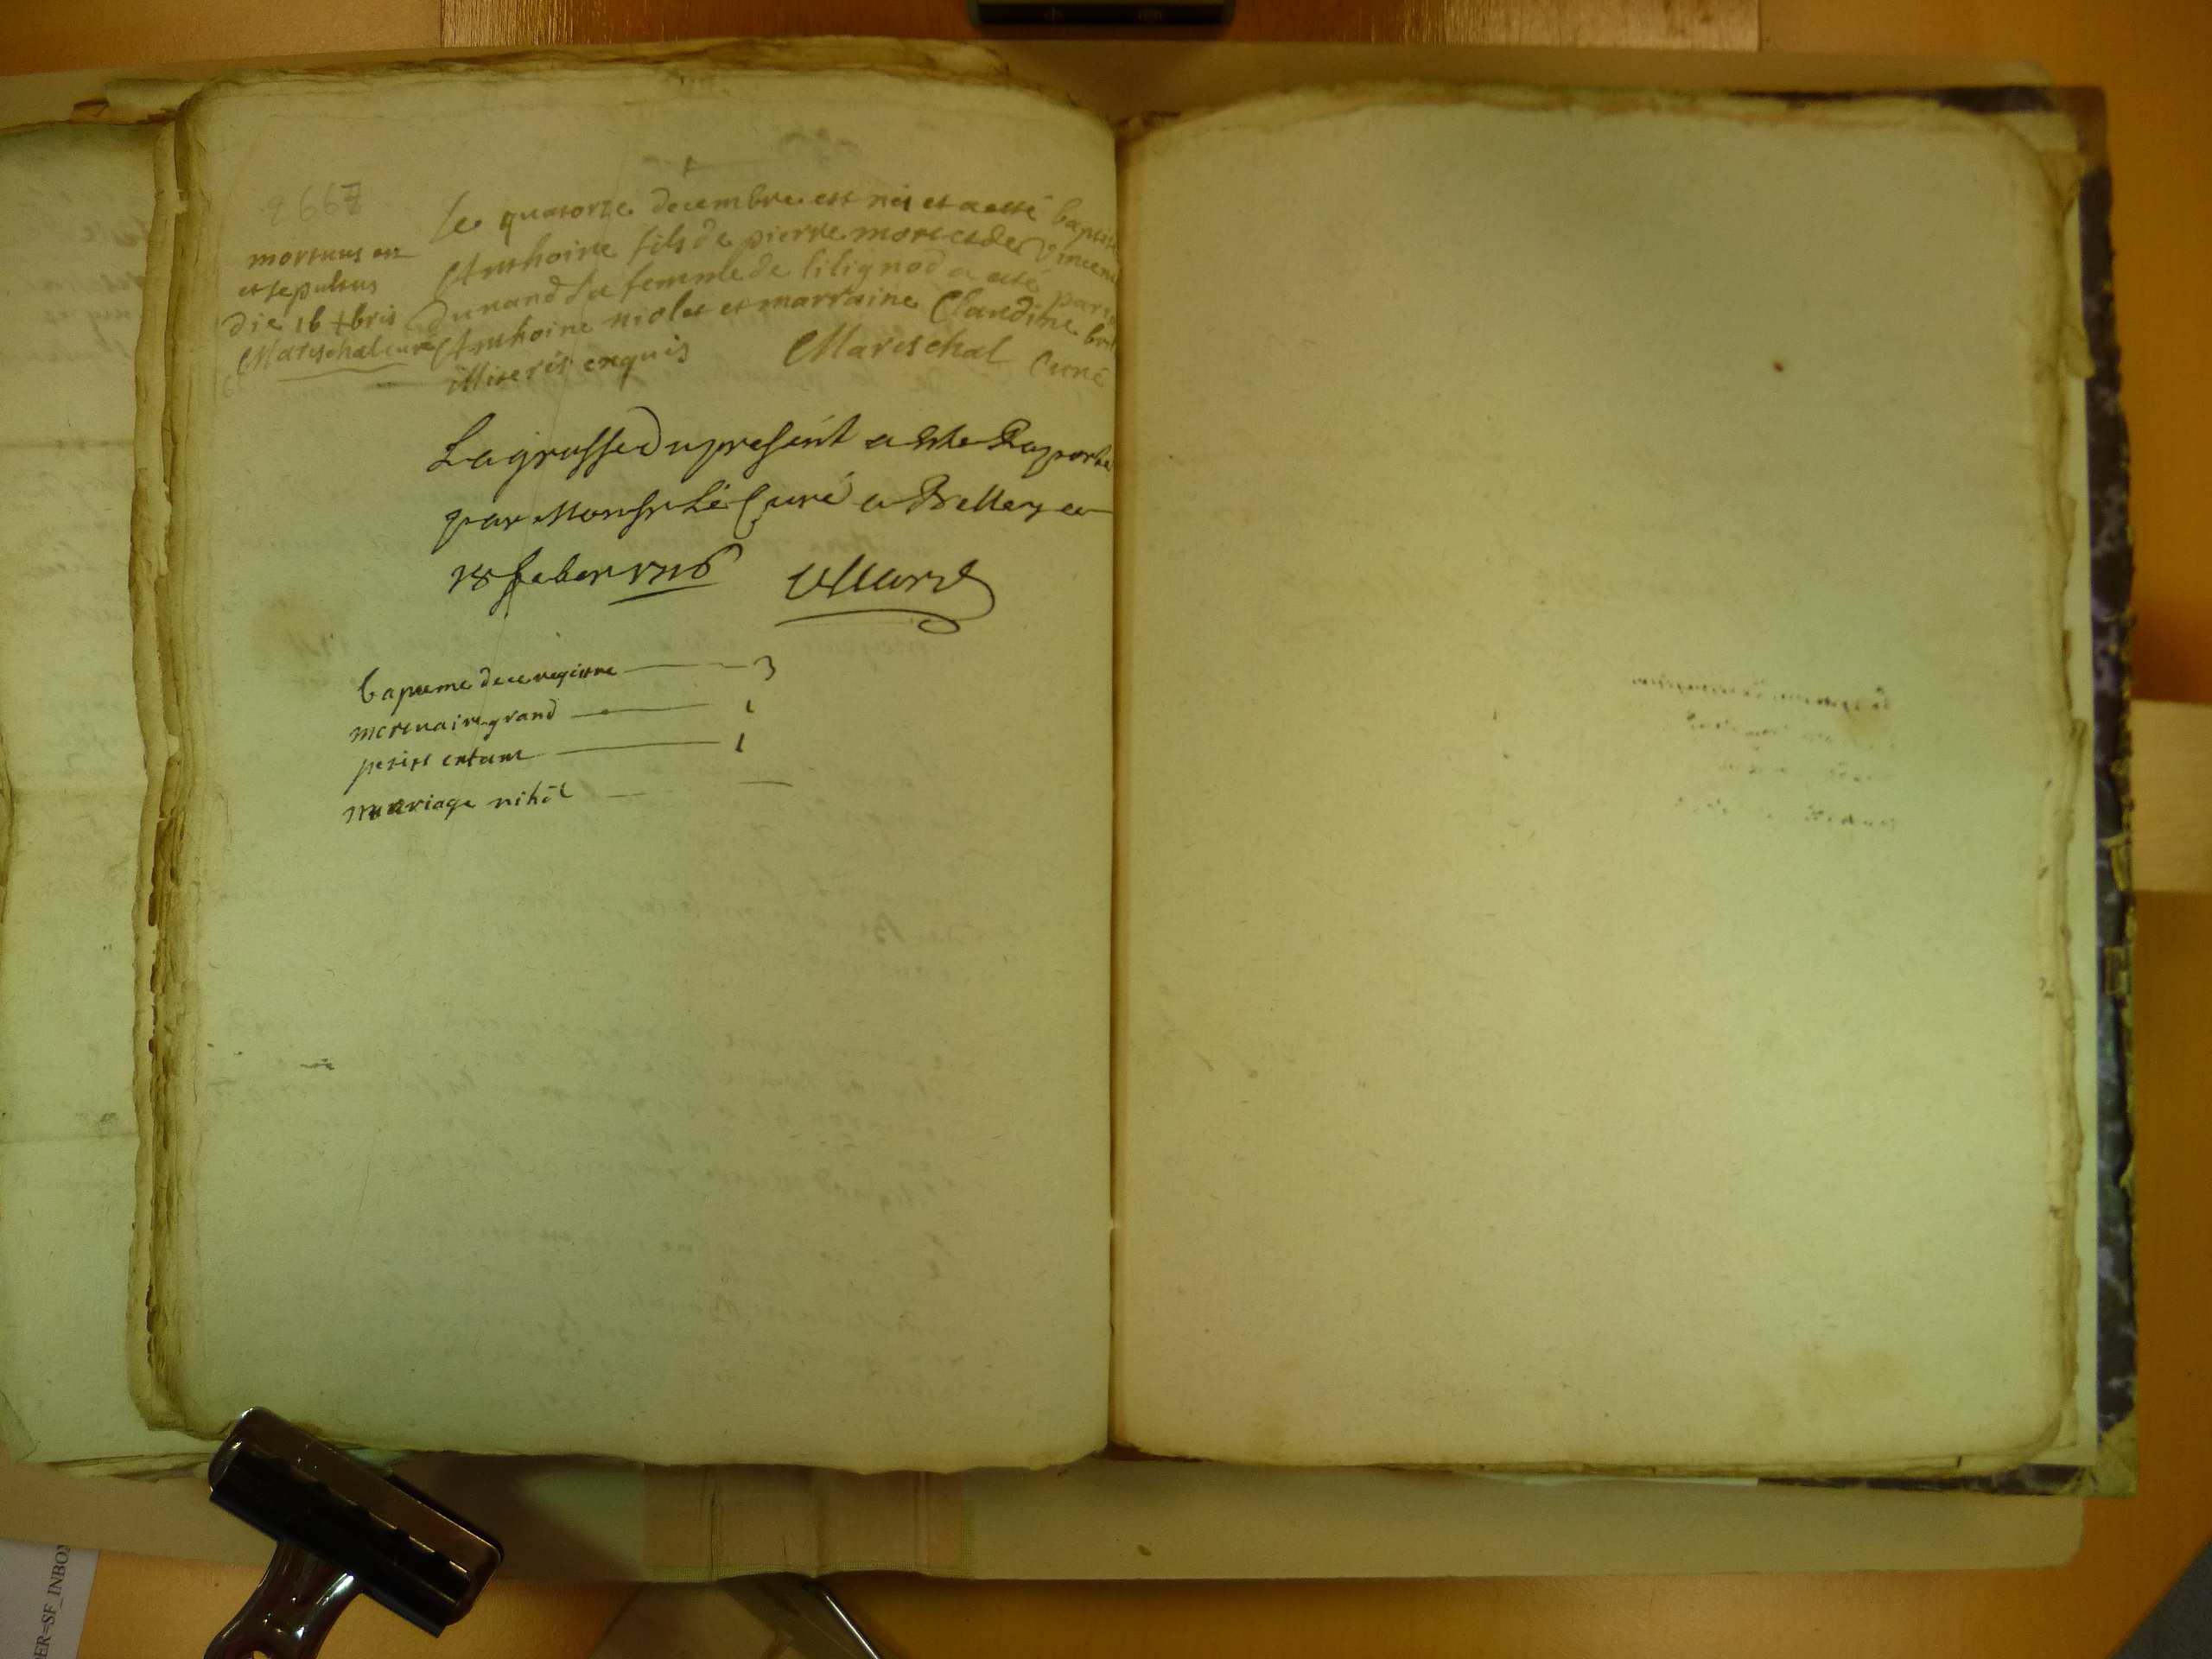 9667
mortuus est
et sepultus
die 16 Xbris
Mareschal curé
le quatorze decembre est néi et a esté baptisé
Anthoine fils de pierre moret et de Vincen
dunand sa femme de lilignod a esté parin
Anthoine niolet et marraine Claudine
illiterés enquis Mareschal Curé
La grosse du present a este Raporté
par Monsr Le Curé a Belley ce
18 feber 1716
bapteme de ce registre 3
mortuaire grand 1
petits enfant 1
mariage nihil
ER=SF_INBOX